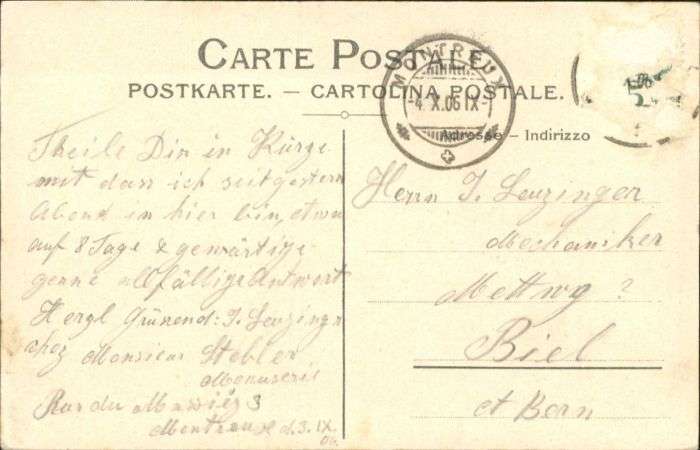 CARTE POSTALE.
POSTKARTE. — CARTOLINA POSTALE.
MONTREUX
-4.X.06 IX-
Adresse – Indirizzo
Theile Dir in Kürze
mit dass ich seit gestern
Abend in hier bin, etwa
auf 8 Tage & gewärtige
gerne allfällige Antwort
Herzl Grüssend: J. Leuzinger
chez Monsieur Stebler
Menuserie
Rue du 3
Montreux d. 3. IX
06.
Herrn J. Leuzinger
Mechaniker
Mettweg ?
Biel
ct Bern